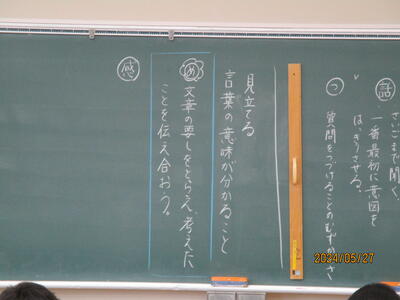 話
さいごまで聞く
一番最初に意図を
はっきりさせる。
つ
質問をつづけることのむずかしさ
見立てる
言葉の意味が分かること
め
文章の要しをとらえ、考えた
ことを伝え合おう。
感
2024/05/27